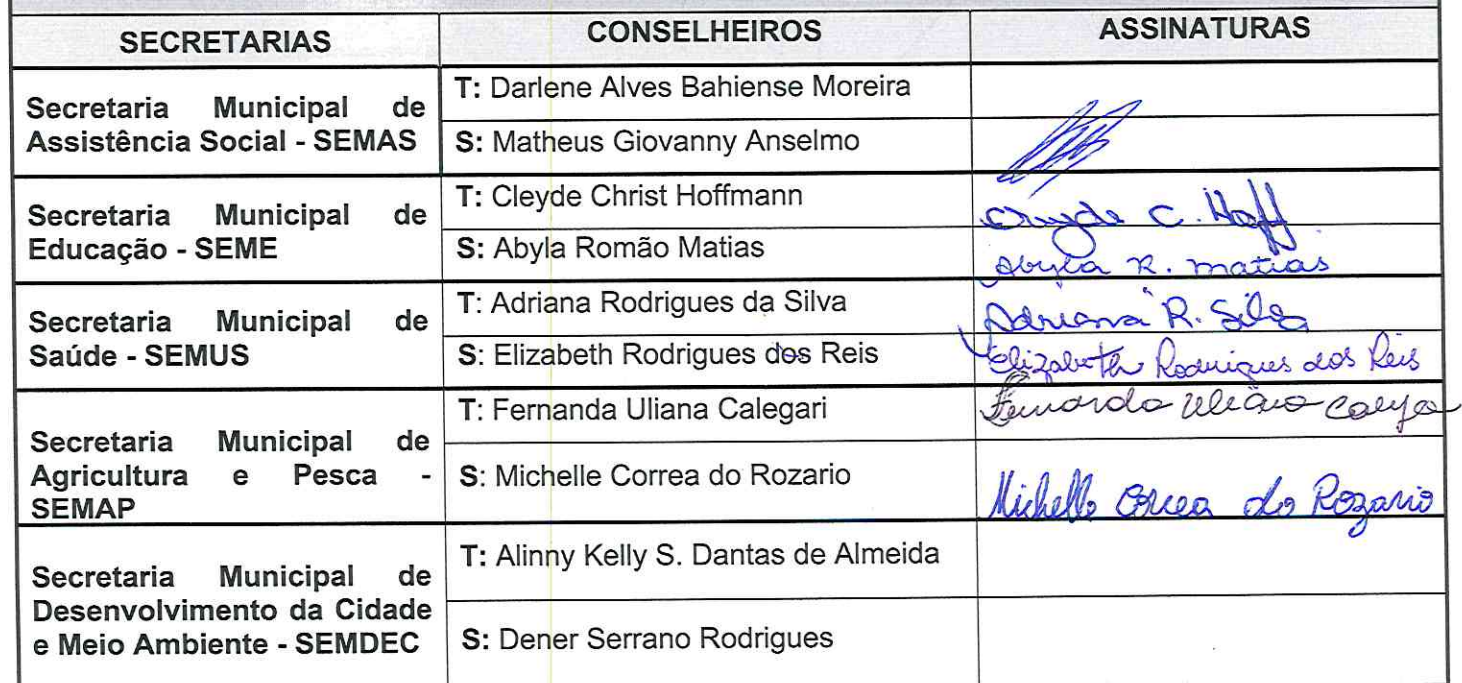 SECRETARIAS CONSELHEIROS ASSINATURAS
Secretaria Municipal de
Assistência Social - SEMAS
T: Darlene Alves Bahiense Moreira
S: Matheus Giovanny Anselmo
Secretaria Municipal de
Educação - SEME
T: Cleyde Christ Hoffmann
Cleyde C. Hoff
S: Abyla Romão Matias
Abyla R. Matias
Secretaria Municipal de
Saúde - SEMUS
T: Adriana Rodrigues da Silva
Adriana R. Silva
S: Elizabeth Rodrigues dos Reis
Elizabeth Rodrigues dos Reis
Secretaria Municipal de
Agricultura e Pesca -
SEMAP
T: Fernanda Uliana Calegari
Fernanda Uliana
S: Michelle Correa do Rozario
Michelle Correa do Rozario
Secretaria Municipal de
Desenvolvimento da Cidade
e Meio Ambiente - SEMDEC
T: Alinny Kelly S. Dantas de Almeida
S: Dener Serrano Rodrigues